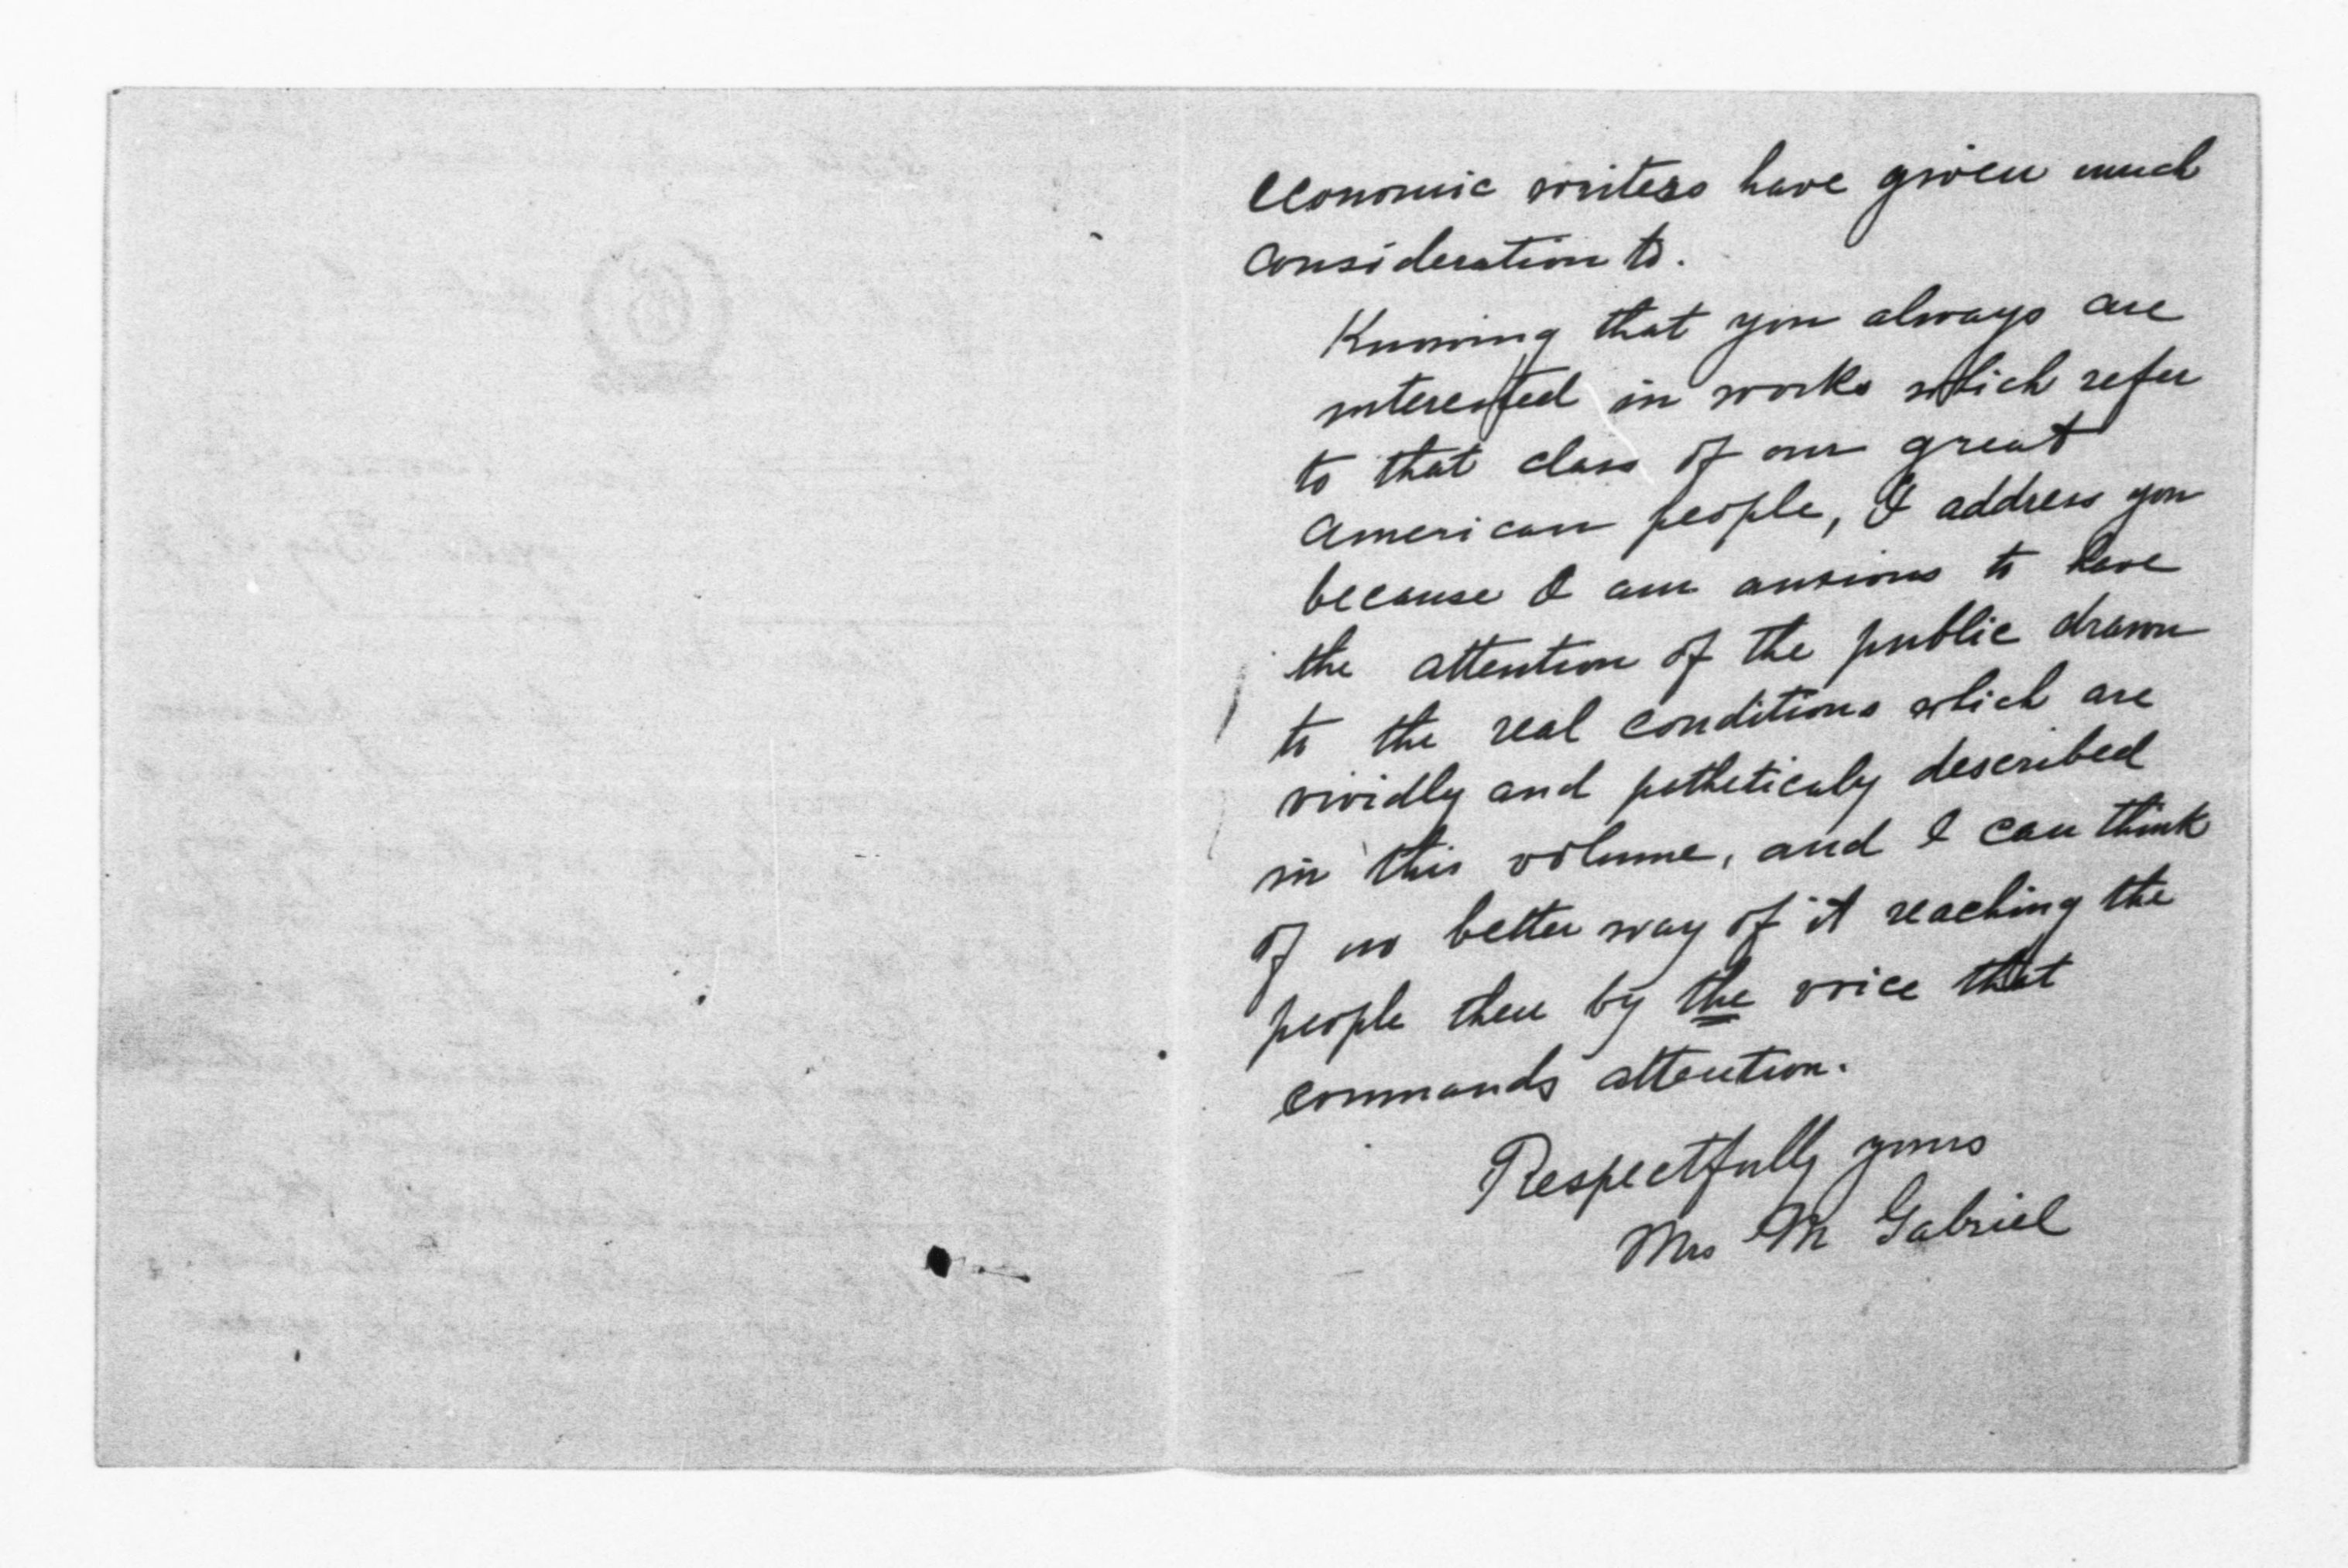 economic writers have given much
consideration to.
Knowing that you always are
interested in works which refer
to that class of our great
American people, I address you
because I am anxious to have
the attention of the public drawn
to the real conditions which are
vividly and patheticaly described
in this volume, and I can think
of no better way of it reaching the
people then by the voice that
commands attention.
Respectfully yours
Mrs M Gabriel